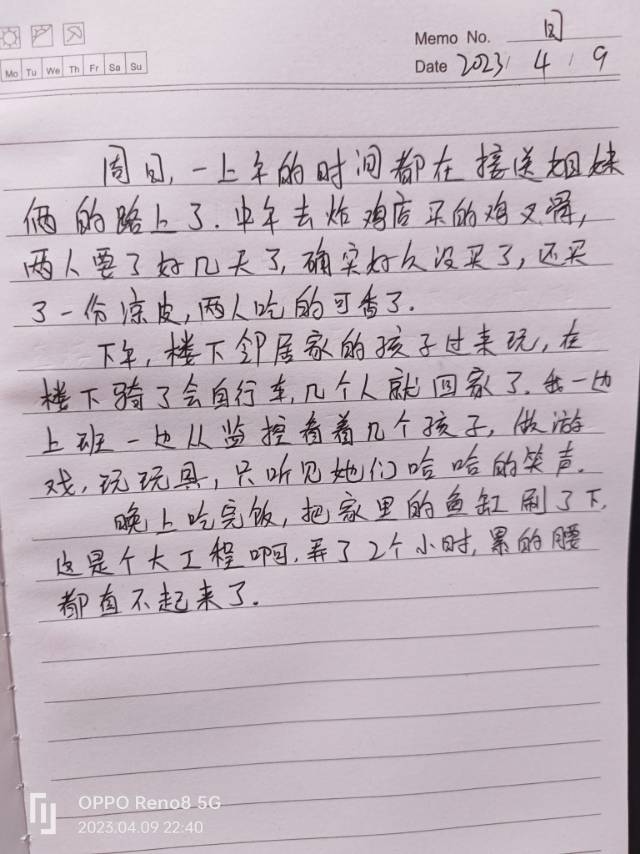 Memo No. 日
Mo Tu We Th Fr Sa Su
Date 2023 / 4 / 9
周日,一上午的时间都在接送姐妹
俩的路上了.中午去炸鸡店买的鸡叉骨,
两人要了好几天了,确实好久没买了,还买
了一份凉皮,两人吃的可香了.
下午,楼下邻居家的孩子过来玩,在
楼下骑了会自行车,几个人就回家了.我一边
上班一边从监控看着几个孩子,做游
戏,玩玩具,只听见她们哈哈的笑声.
晚上吃完饭,把家里的鱼缸刷了下,
这是个大工程啊,弄了2个小时,累的腰
都直不起来了.
OPPO Reno8 5G
2023.04.09 22:40